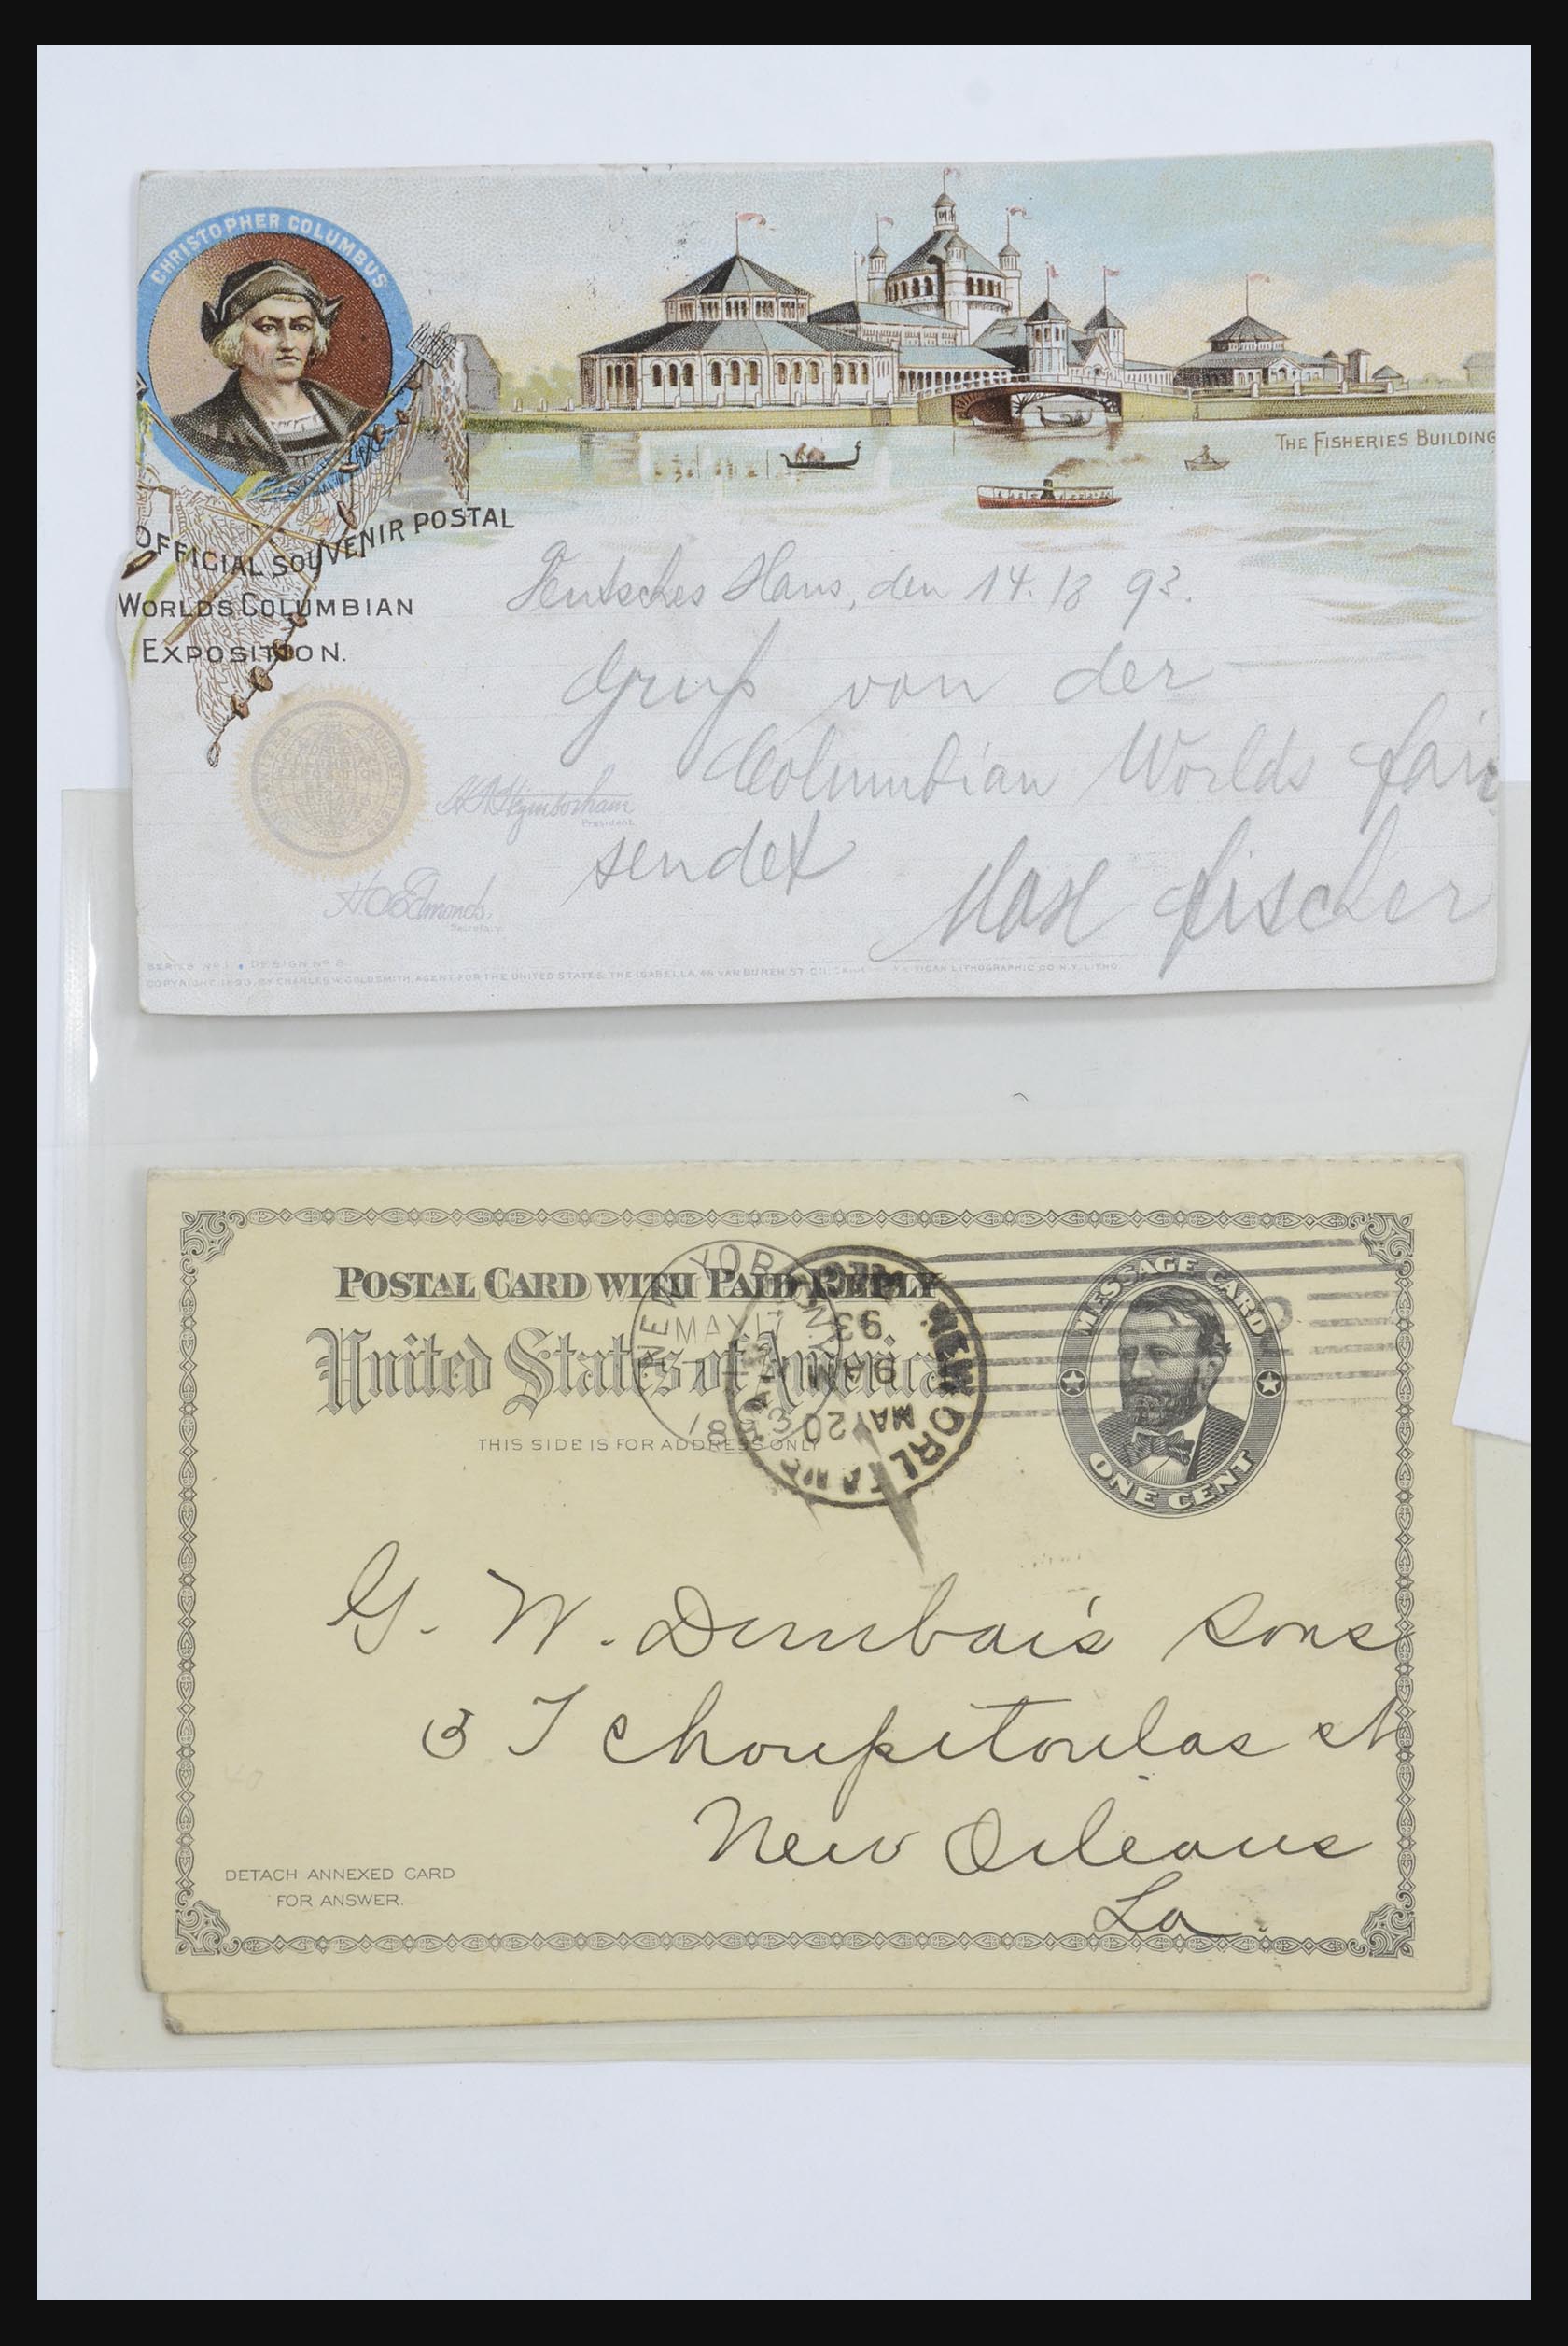 CHRISTOPHER COLUMBUS
THE FISHERIES BUILDING
OFFICIAL SOUVENIR POSTAL
WORLD'S COLUMBIAN
EXPOSITION.
Deutsches Haus, den 14. 18 93.
Gruß von der
Columbian Worlds fair
sendet
Max Fischer
President.
H.O. Edmonds,
Secretary
SERIES No 1 • DESIGN No 8
COPYRIGHT 1893, BY CHARLES W. GOLDSMITH, AGENT FOR THE UNITED STATES, THE ISABELLA, 46 VAN BUREN ST AMERICAN LITHOGRAPHIC CO N.Y. LITHO.
POSTAL CARD WITH PAID REPLY
United States of America
THIS SIDE IS FOR ADDRESS ONLY
NEW YORK N.Y.
MAY 17
1893
NEW ORLEANS
MAY 20
93
MESSAGE CARD
ONE CENT
2
G. W. Sons
3 Tchoupitoulas st
New Orleans
La.
DETACH ANNEXED CARD
FOR ANSWER.